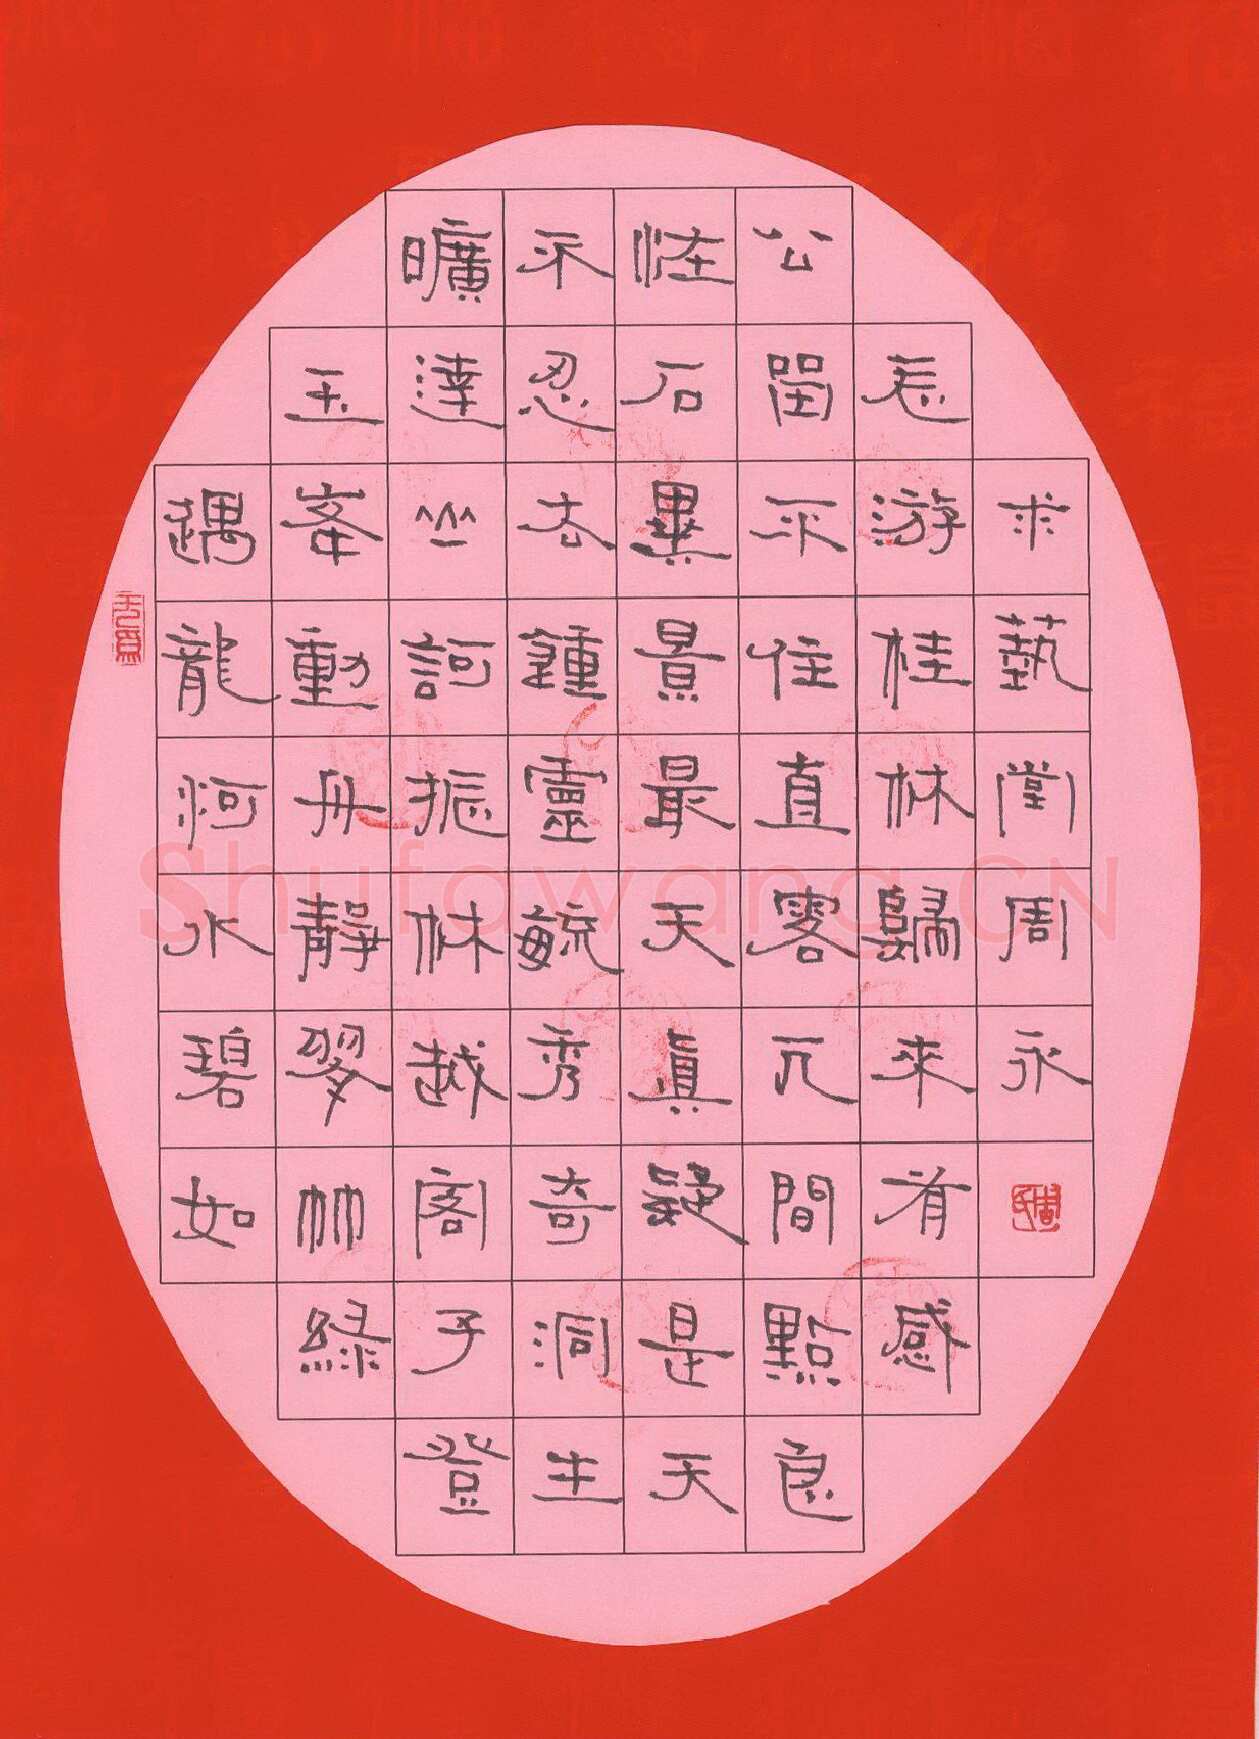 遇龍河水碧如
玉峯動舟靜翠竹綠
曠達訶振林越閣子登
不忍去鍾靈毓秀奇洞生
怪石異景最天真疑是天
公留不住直零間點良
辰游桂林歸來有感
求藝堂周永
Shufawang.CN